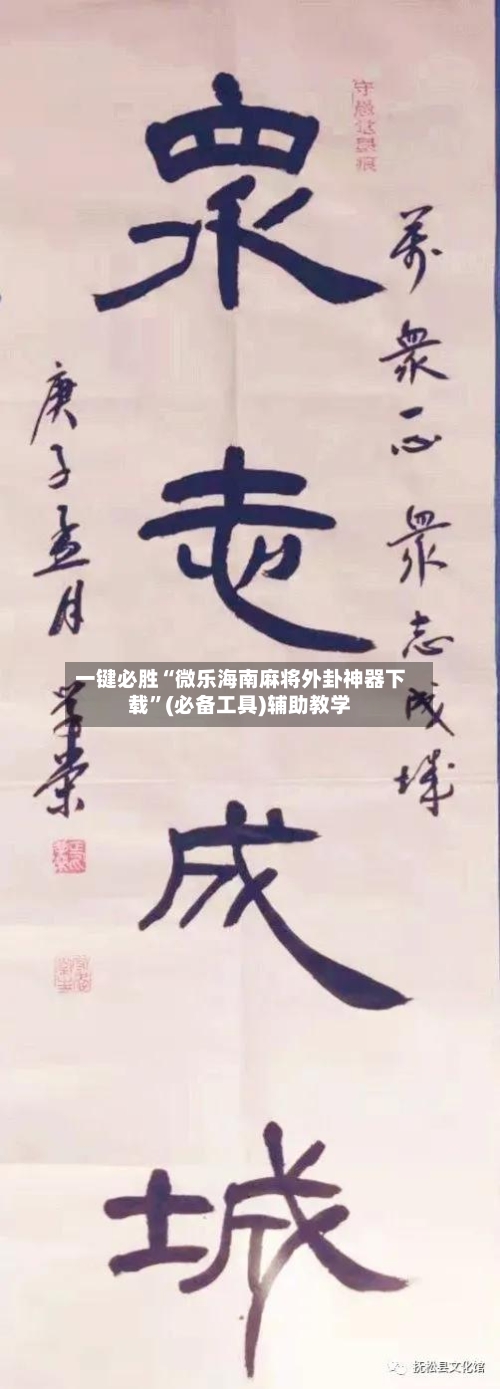 眾志成城
萬眾一心 眾志成城
庚子孟月
一键必胜“微乐海南麻将外卦神器下
载”(必备工具)辅助教学
抚松县文化馆